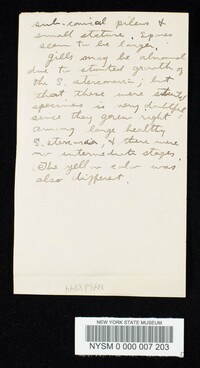 sub-conical pileus &
small stature. Spores
seem to be larger.
Gills may be abnormal
due to stunted growth of
the S. stercoraria; but
that there were
specimens is very doubtful
since they grew right
among large healthy
S. stercoraria, & there were
no intermediate stages.
The yellow color was
also different.
NEW YORK STATE MUSEUM
NYSM 0 000 007 203